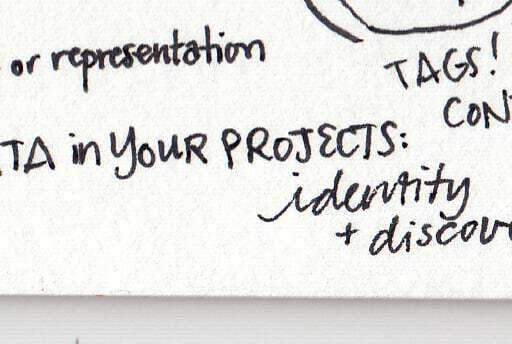 or representation
TAGS!
CON
TA in YOUR PROJECTS:
identity
+ discov